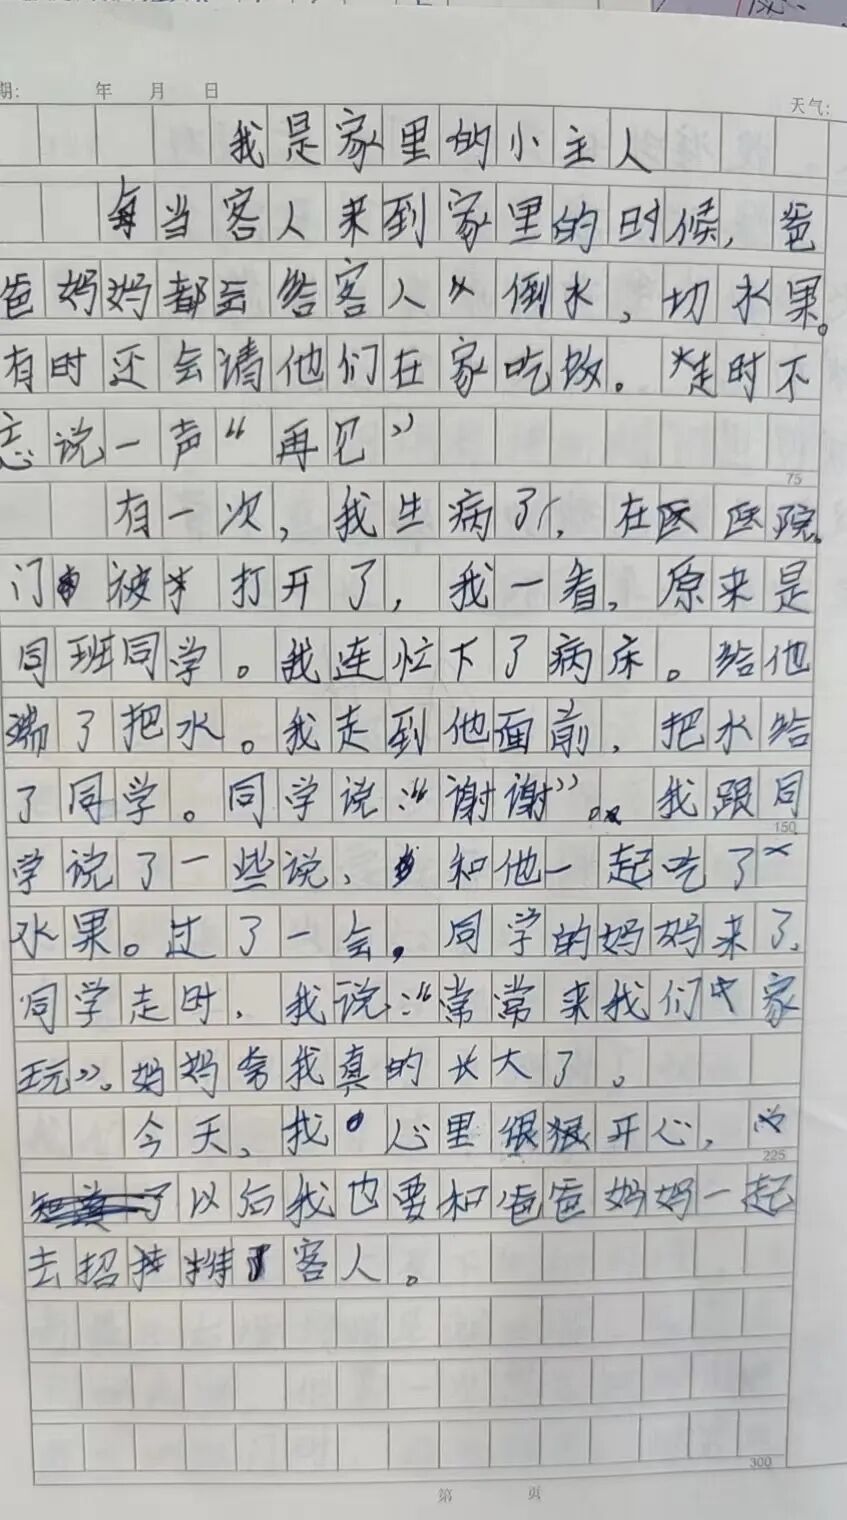 期： 年 月 日 天气：
我是家里的小主人
每当客人来到家里的时候，爸
爸妈妈都会给客人倒水，切水果。
有时还会请他们在家吃饭。走时不
忘说一声“再见”
75
有一次，我生病了，在医医院。
门被打开了，我一看，原来是
同班同学。我连忙下了病床。给他
端了把水。我走到他面前，把水给
了同学。同学说：“谢谢”。我跟同
150
学说了一些说，和他一起吃了
水果。过了一会，同学的妈妈来了，
同学走时，我说：“常常来我们家
玩”。妈妈夸我真的长大了。
今天，我心里很很开心，
225
以后我也要和爸爸妈妈一起
去招待客人。
300
第 页